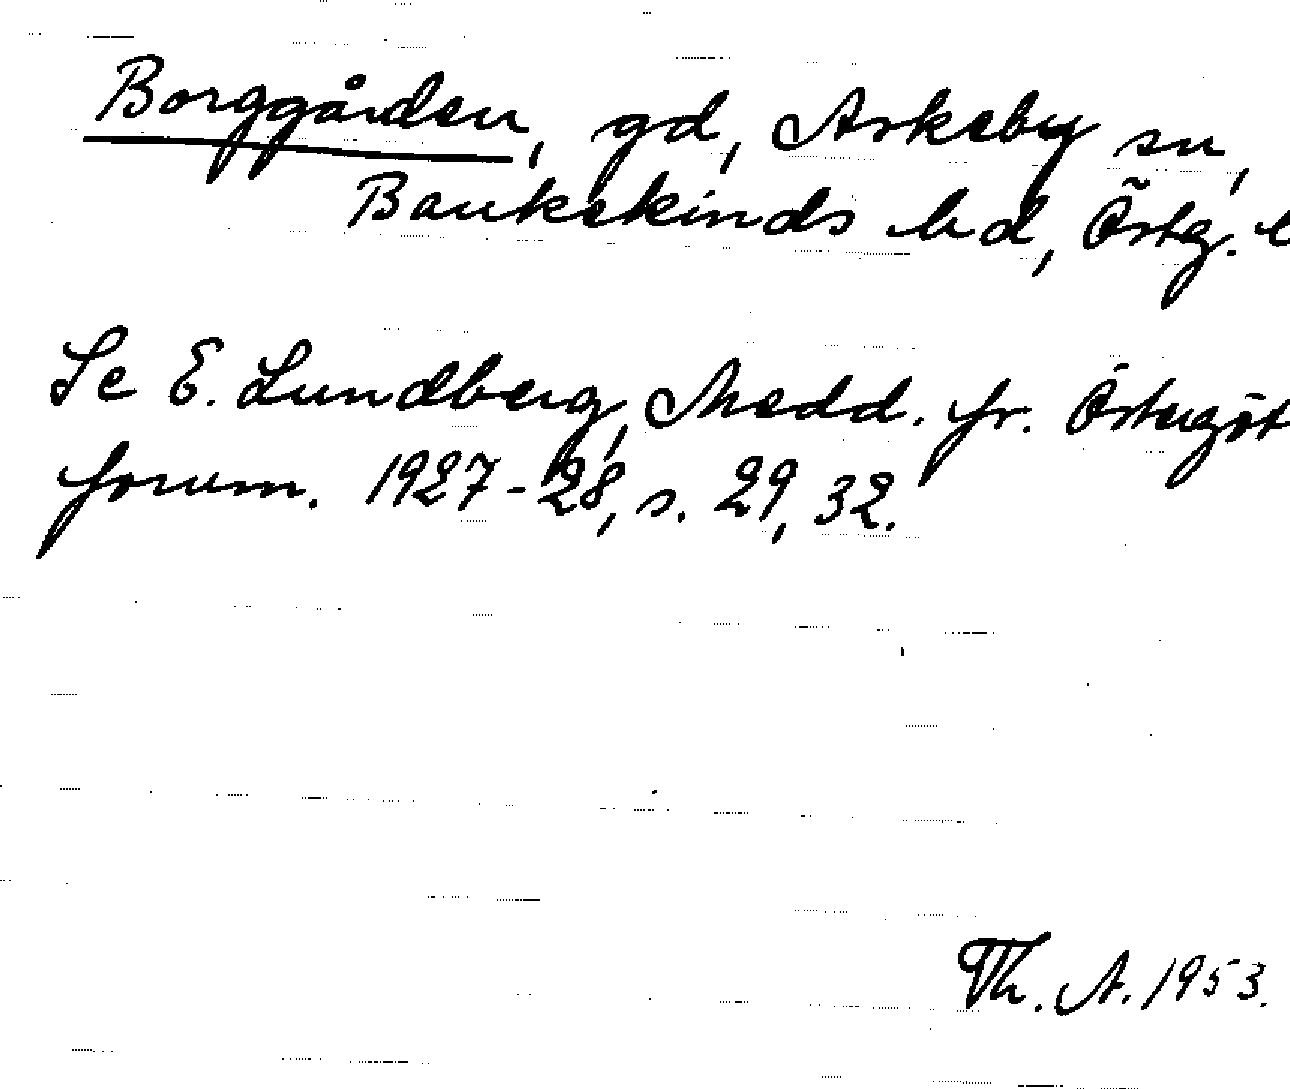 Borggården, gd, Askeby sn,
Bankekinds hd, Östg. l
Se E. Lundberg, Medd. fr. Östergöt
forum. 1927-28, s. 29, 32.
Th. A. 1953.